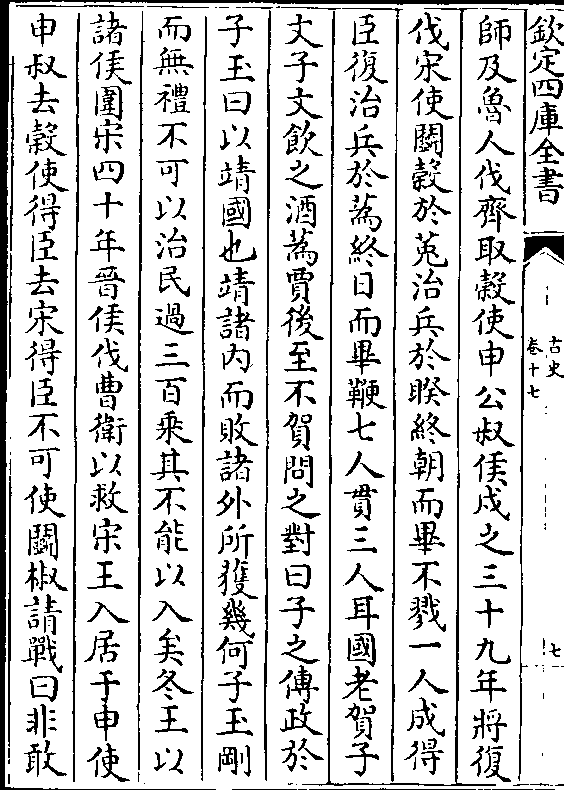 欽定四庫全書
古史
卷十七
七
師及魯人伐齊取穀使申公叔侯戍之三十九年將復
伐宋使鬭穀於菟治兵於睽終朝而畢不戮一人成得
臣復治兵於蒍終日而畢鞭七人貫三人耳國老賀子
文子文飲之酒蒍賈後至不賀問之對曰子之傳政於
子玉曰以靖國也靖諸内而敗諸外所獲幾何子玉剛
而無禮不可以治民過三百乘其不能以入矣冬王以
諸侯圍宋四十年晉侯伐曹衛以救宋王入居于申使
申叔去穀使得臣去宋得臣不可使鬭椒請戰曰非敢